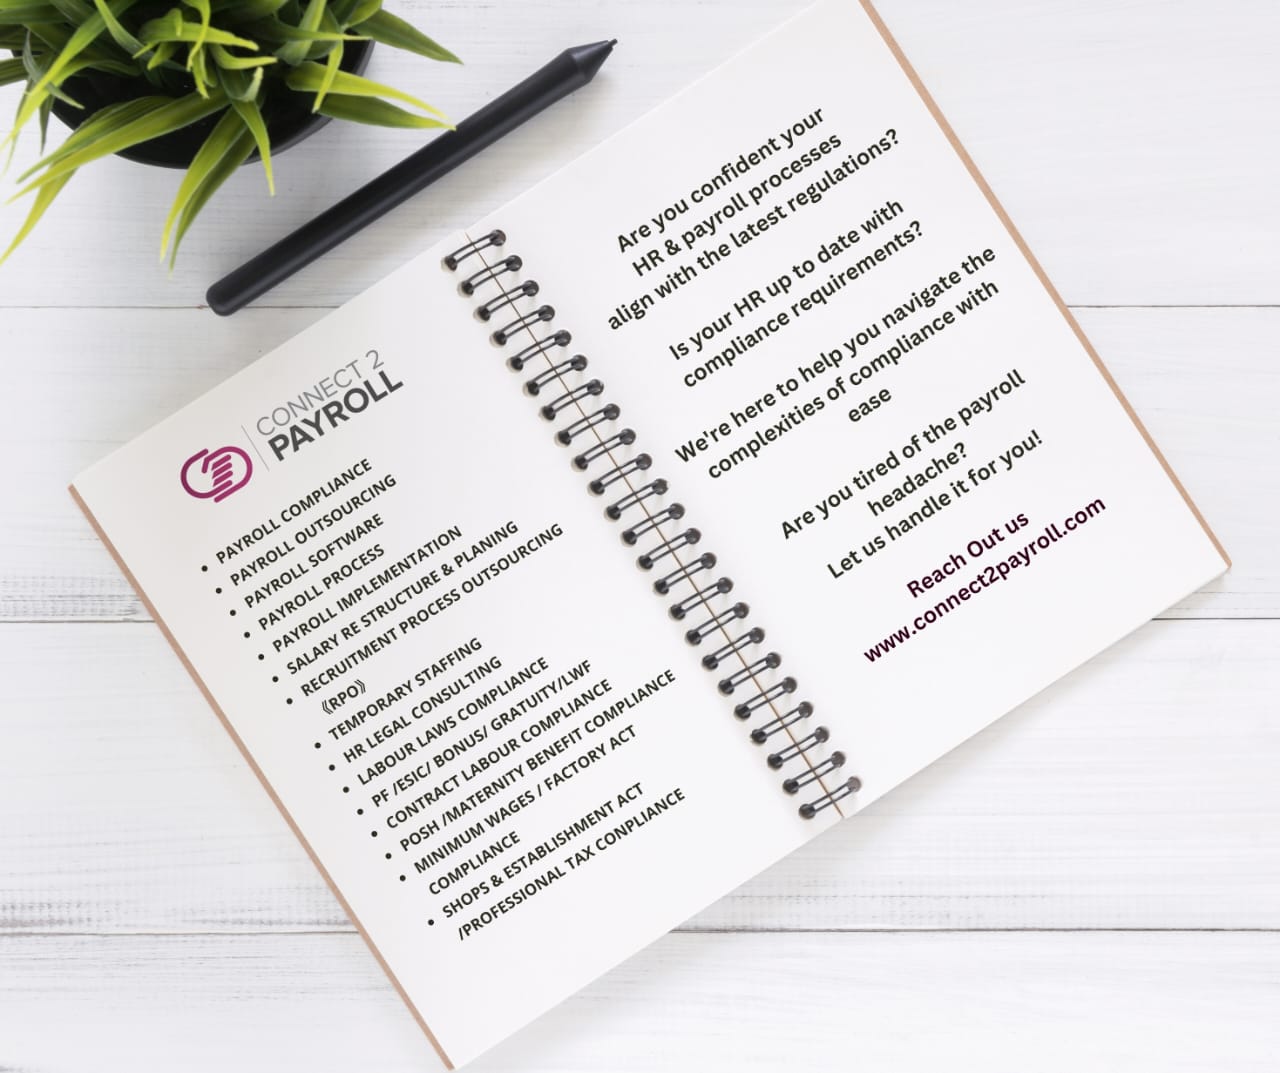 CONNECT 2
PAYROLL
• PAYROLL COMPLIANCE
• PAYROLL OUTSOURCING
• PAYROLL SOFTWARE
• PAYROLL PROCESS
• PAYROLL IMPLEMENTATION
• SALARY RE STRUCTURE & PLANING
• RECRUITMENT PROCESS OUTSOURCING
《RPO》
• TEMPORARY STAFFING
• HR LEGAL CONSULTING
• LABOUR LAWS COMPLIANCE
• PF /ESIC/ BONUS/ GRATUITY/LWF
• CONTRACT LABOUR COMPLIANCE
• POSH /MATERNITY BENEFIT COMPLIANCE
• MINIMUM WAGES / FACTORY ACT
COMPLIANCE
• SHOPS & ESTABLISHMENT ACT
/PROFESSIONAL TAX CONPLIANCE
Are you confident your
HR & payroll processes
align with the latest regulations?
Is your HR up to date with
compliance requirements?
We're here to help you navigate the
complexities of compliance with
ease
Are you tired of the payroll
headache?
Let us handle it for you!
Reach Out us
www.connect2payroll.com